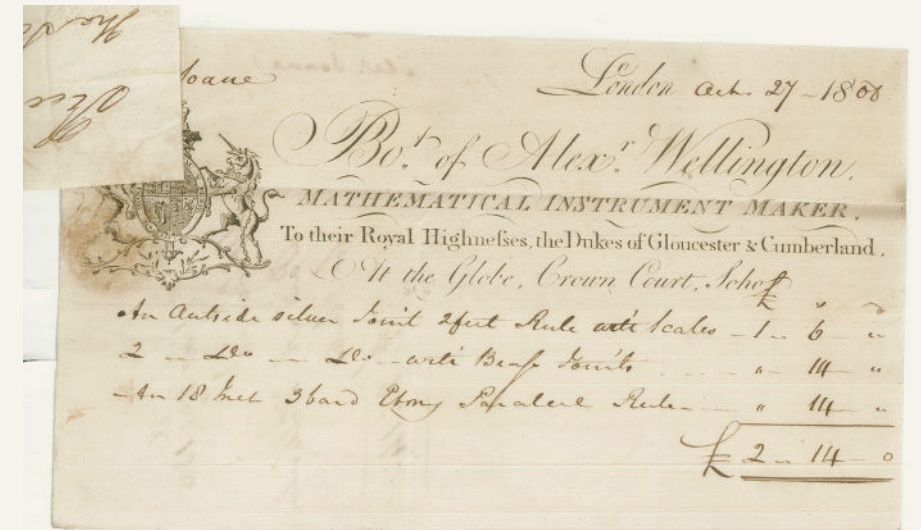 Soane
London Oct. 27 - 1808
Bot. of Alexr. Wellington,
MATHEMATICAL INSTRUMENT MAKER,
To their Royal Highneſses, the Dukes of Gloucester & Cumberland,
At the Globe, Crown Court, Soho
£ s d
An Outside silver Joint 2 feet Rule with Scales - 1 - 6 - "
2 - Do - Do - with Braſs Joints " 14 "
An 18 Inch 3 bard Ebony Paralell Rule " 14 - "
£ 2 - 14 - 0